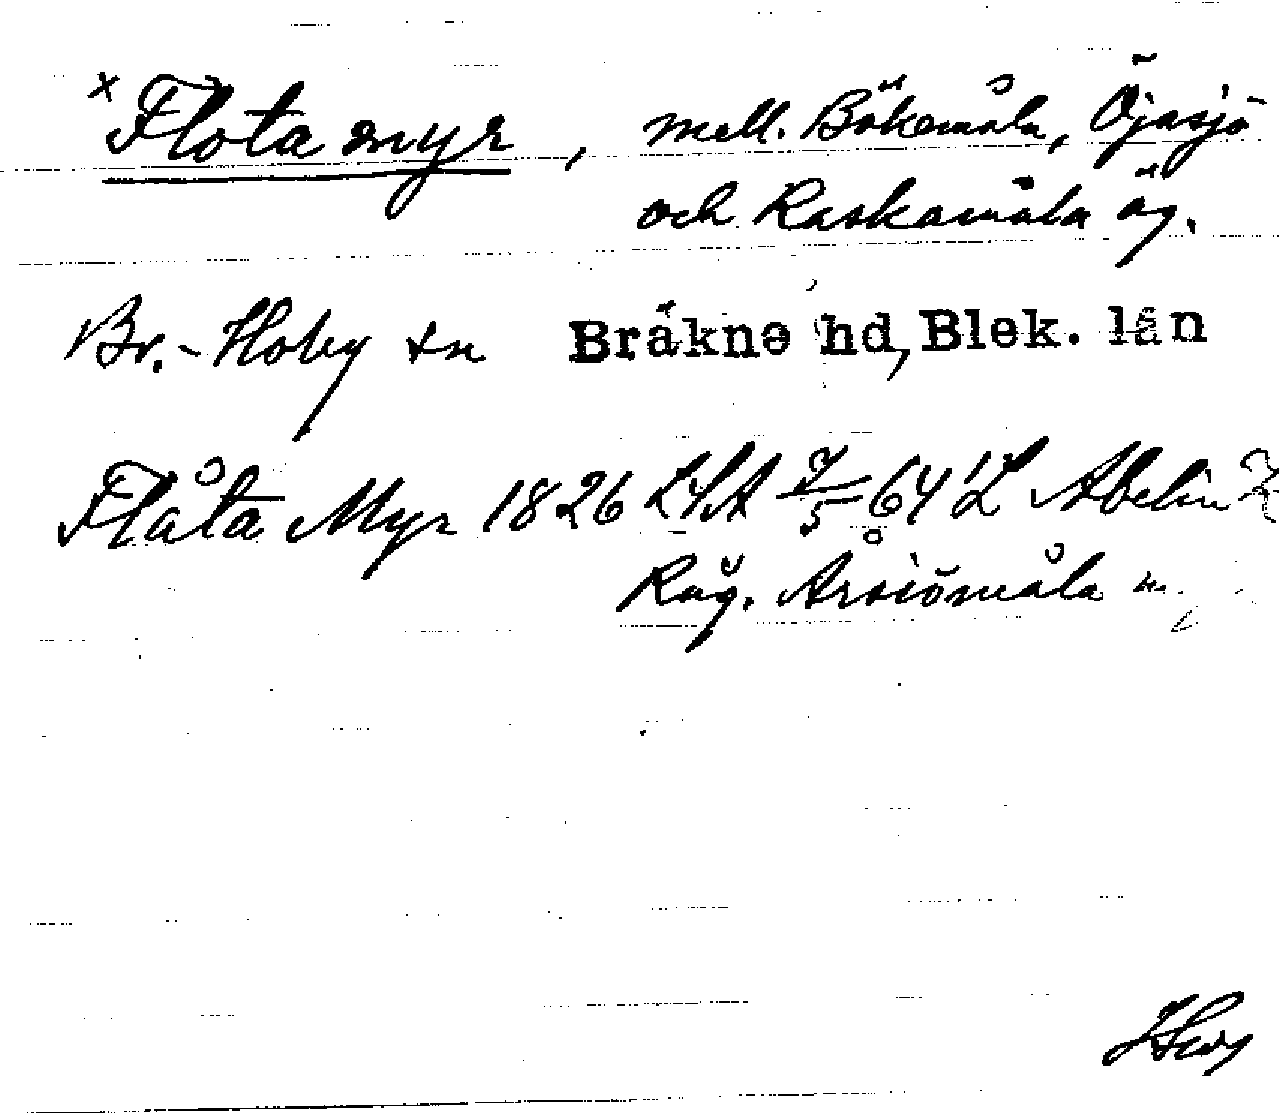 × Flota myr, mell. Bökemåla, Öjasjö
och Raskamåla äg.
Br.-Hoby sn Bräkne hd, Blek. län
Flåta Myr 1826 LSA 7/5 64 L Abelin
Råg. Arsiömåla